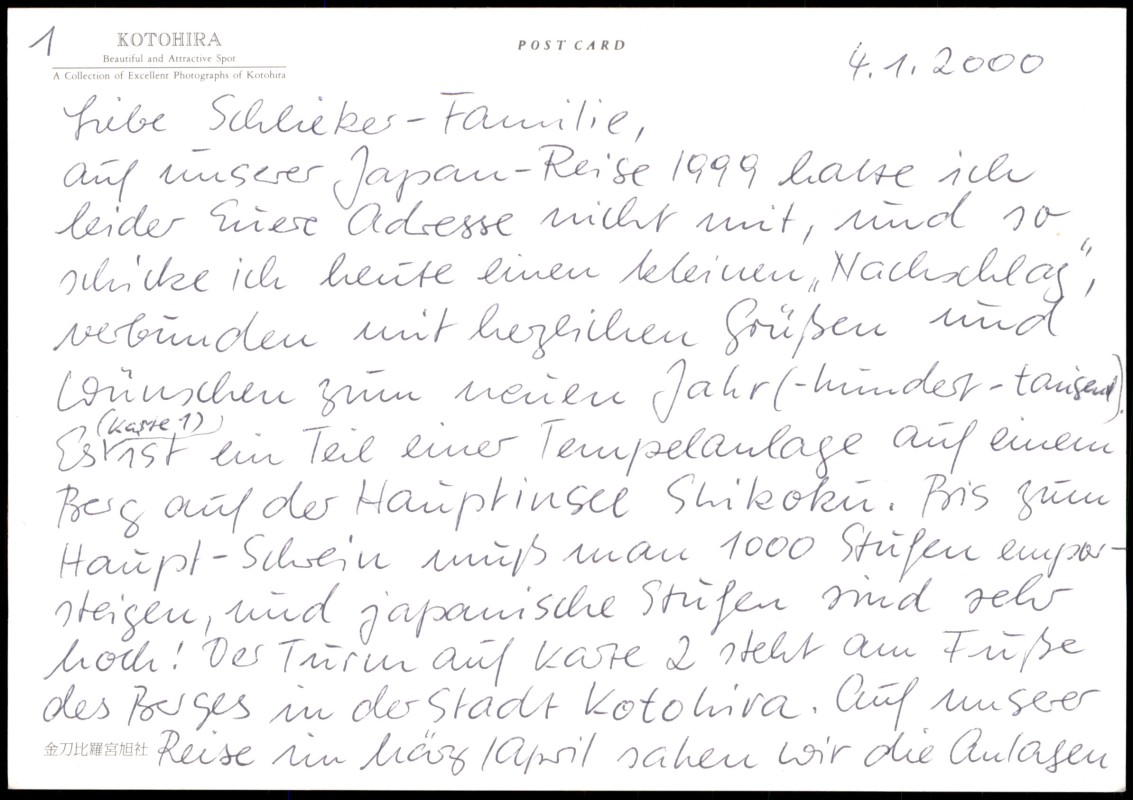 1
KOTOHIRA
Beautiful and Attractive Spot
A Collection of Excellent Photographs of Kotohira
POST CARD
4.1.2000
Liebe Schlieker-Familie,
auf unserer Japan-Reise 1999 hatte ich
leider Euere Adresse nicht mit, und so
schicke ich heute einen kleinen „Nachschlag",
verbunden mit herzlichen Grüßen und
Wünschen zum neuen Jahr (-hundert-tausend).
(Karte 1)
Es ist ein Teil einer Tempelanlage auf einem
Berg auf der Hauptinsel Shikoku. Bis zum
Haupt-Schrein muß man 1000 Stufen empor-
steigen, und japanische Stufen sind sehr
hoch! Der Turm auf Karte 2 steht am Fuße
des Berges in der Stadt Kotohira. Auf unserer
金刀比羅宮旭社 Reise im März/April sahen wir die Anlagen